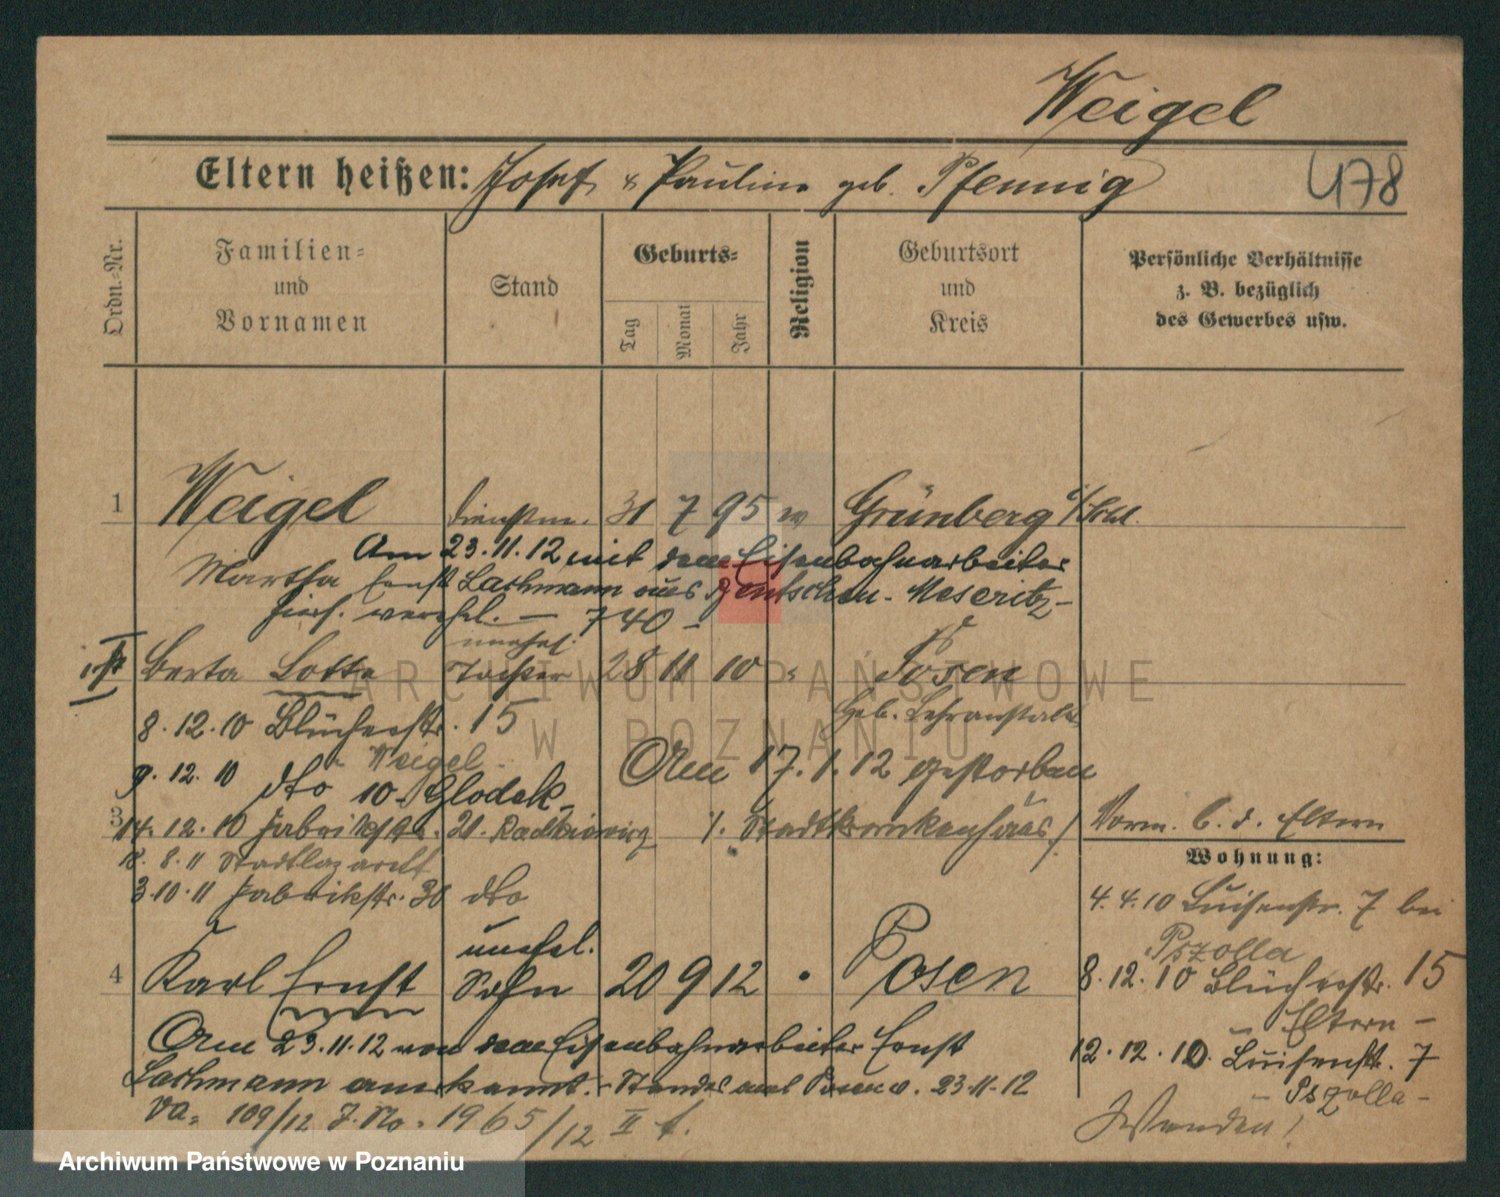 Weigel
Eltern heißen: Josef & Pauline geb. Pfennig
478
Ordn.-Nr.
Familien=
und
Vornamen
Stand
Geburts=
Tag
Monat
Jahr
Religion
Geburtsort
und
Kreis
Persönliche Verhältnisse
z. B. bezüglich
des Gewerbes usw.
1 Weigel Dienstm. 31 7 95 Grünberg i/Schl.
Am 23.11.12 mit dem Eisenbahnarbeiter
Martha Ernst Lachmann aus Bentschen-Meseritz-
hies. verehel. — 740 —
unehel.
Berta Lotte Tochter 28 11 10 " Posen
Heb. Lehranstalt
8.12.10 Blücherstr. 15
Weigel
9.12.10 dto 10 - Glodek -
Am 17.1.12 gestorben
3
14.12.10 Fabrikstr. 21. Radkiewicz
i. Stadtkrankenhaus /
Vorm. b. d. Eltern
Wohnung:
8.11 Stadtlazarett
3.10.11 Fabrikstr. 30 dto
4.4.10 Luisenstr. 7 bei
Pszolla
unehel.
4 Karl Ernst Sohn 20 9 12 " Posen
8.12.10 Blücherstr. 15
- Eltern -
Am 23.11.12 von dem Eisenbahnarbeiter Ernst
12.12.10. Luisenstr. 7
Lachmann anerkannt. Standesamt Posen v. 23.11.12
- Pszolla -
Va. 109/12 J. No. 1965/12 II
Wenden!
ARCHIWUM PAŃSTWOWE
W POZNANIU
Archiwum Państwowe w Poznaniu